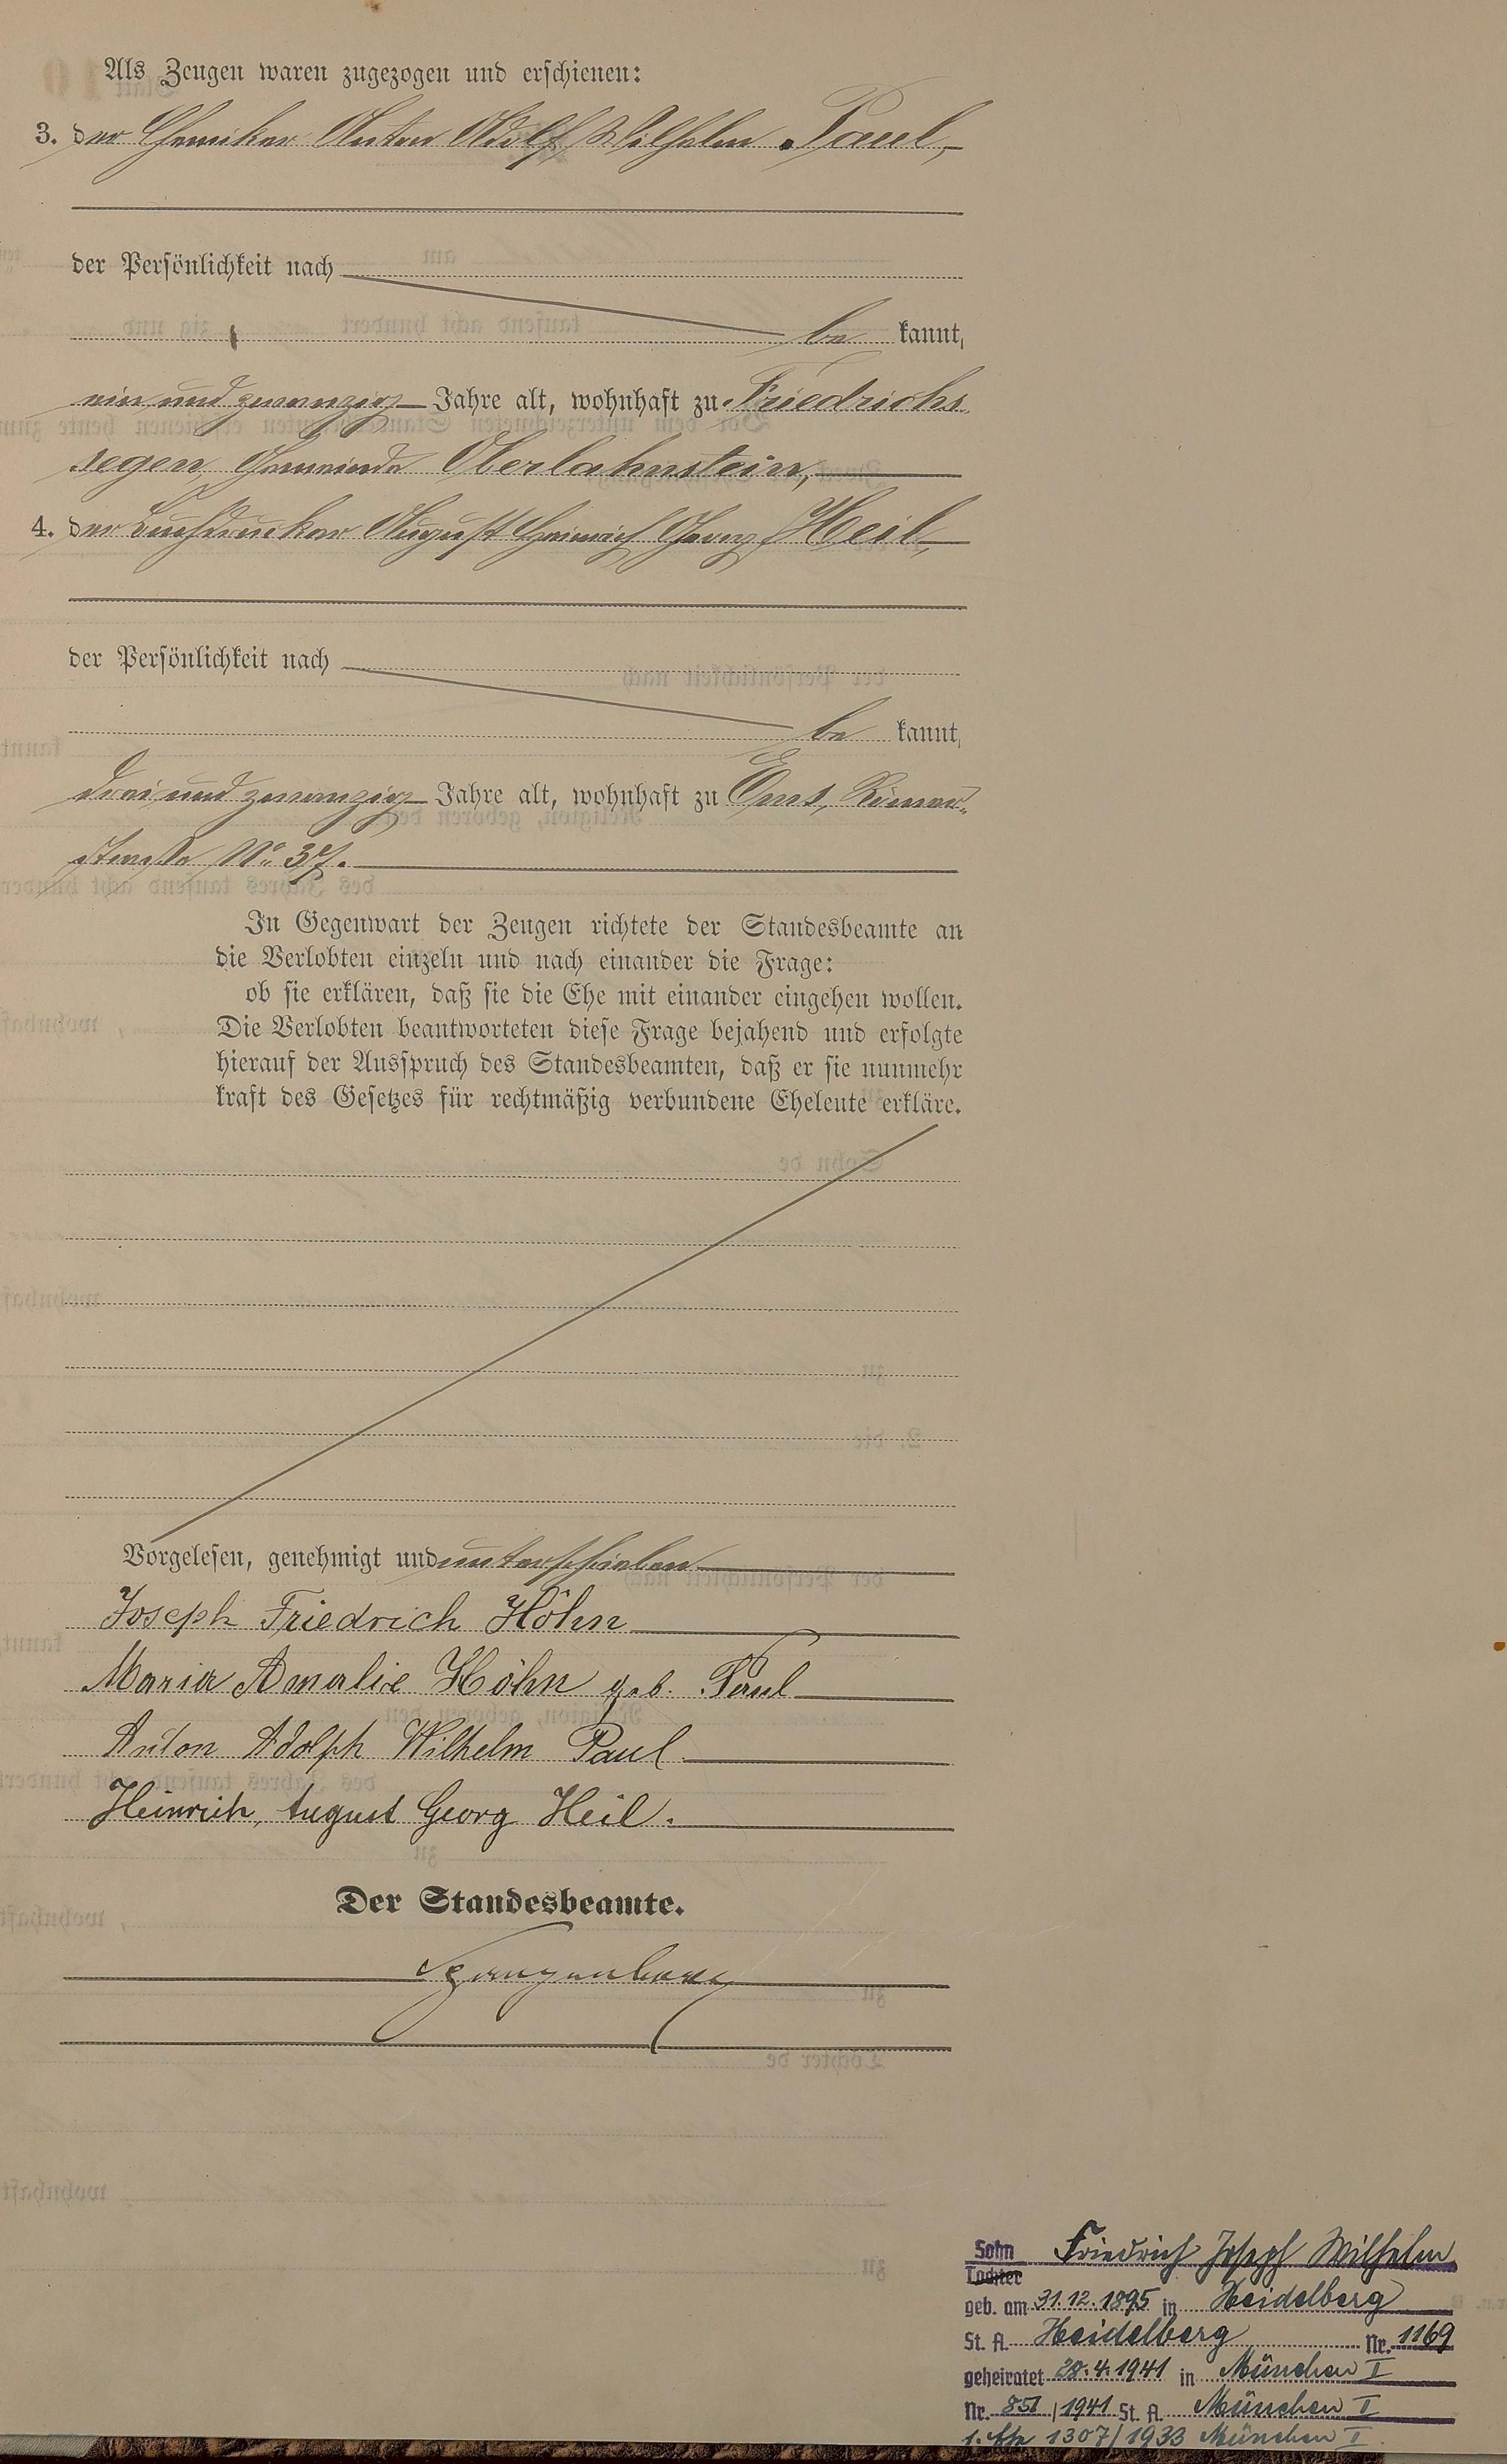 Als Zeugen waren zugezogen und erschienen:
3. der Chemiker Anton Adolf Wilhelm Paul,
der Persönlichkeit nach
be kannt,
ein und zwanzig Jahre alt, wohnhaft zu Friedrichs
segen, Gemeinde Oberlahnstein,
4. der Buchdrucker August Heinrich Georg Heil,
der Persönlichkeit nach
be kannt,
drei und zwanzig Jahre alt, wohnhaft zu Ems, Römer-
straße No. 37.
In Gegenwart der Zeugen richtete der Standesbeamte an
die Verlobten einzeln und nach einander die Frage:
ob sie erklären, daß sie die Ehe mit einander eingehen wollen.
Die Verlobten beantworteten diese Frage bejahend und erfolgte
hierauf der Ausspruch des Standesbeamten, daß er sie nunmehr
kraft des Gesetzes für rechtmäßig verbundene Eheleute erkläre.
Vorgelesen, genehmigt und unterschrieben
Joseph Friedrich Höhn
Maria Amalie Höhn geb. Paul
Anton Adolph Wilhelm Paul
Heinrich, August Georg Heil.
Der Standesbeamte.
Sohn Friedrich Joseph Wilhelm
Tochter
geb. am 31.12.1895 in Heidelberg
St. A. Heidelberg Nr. 1169
geheiratet 28.4.1941 in München I
Nr. 851 / 1941 St. A. München I
1. Ehe 1307/1933 München I